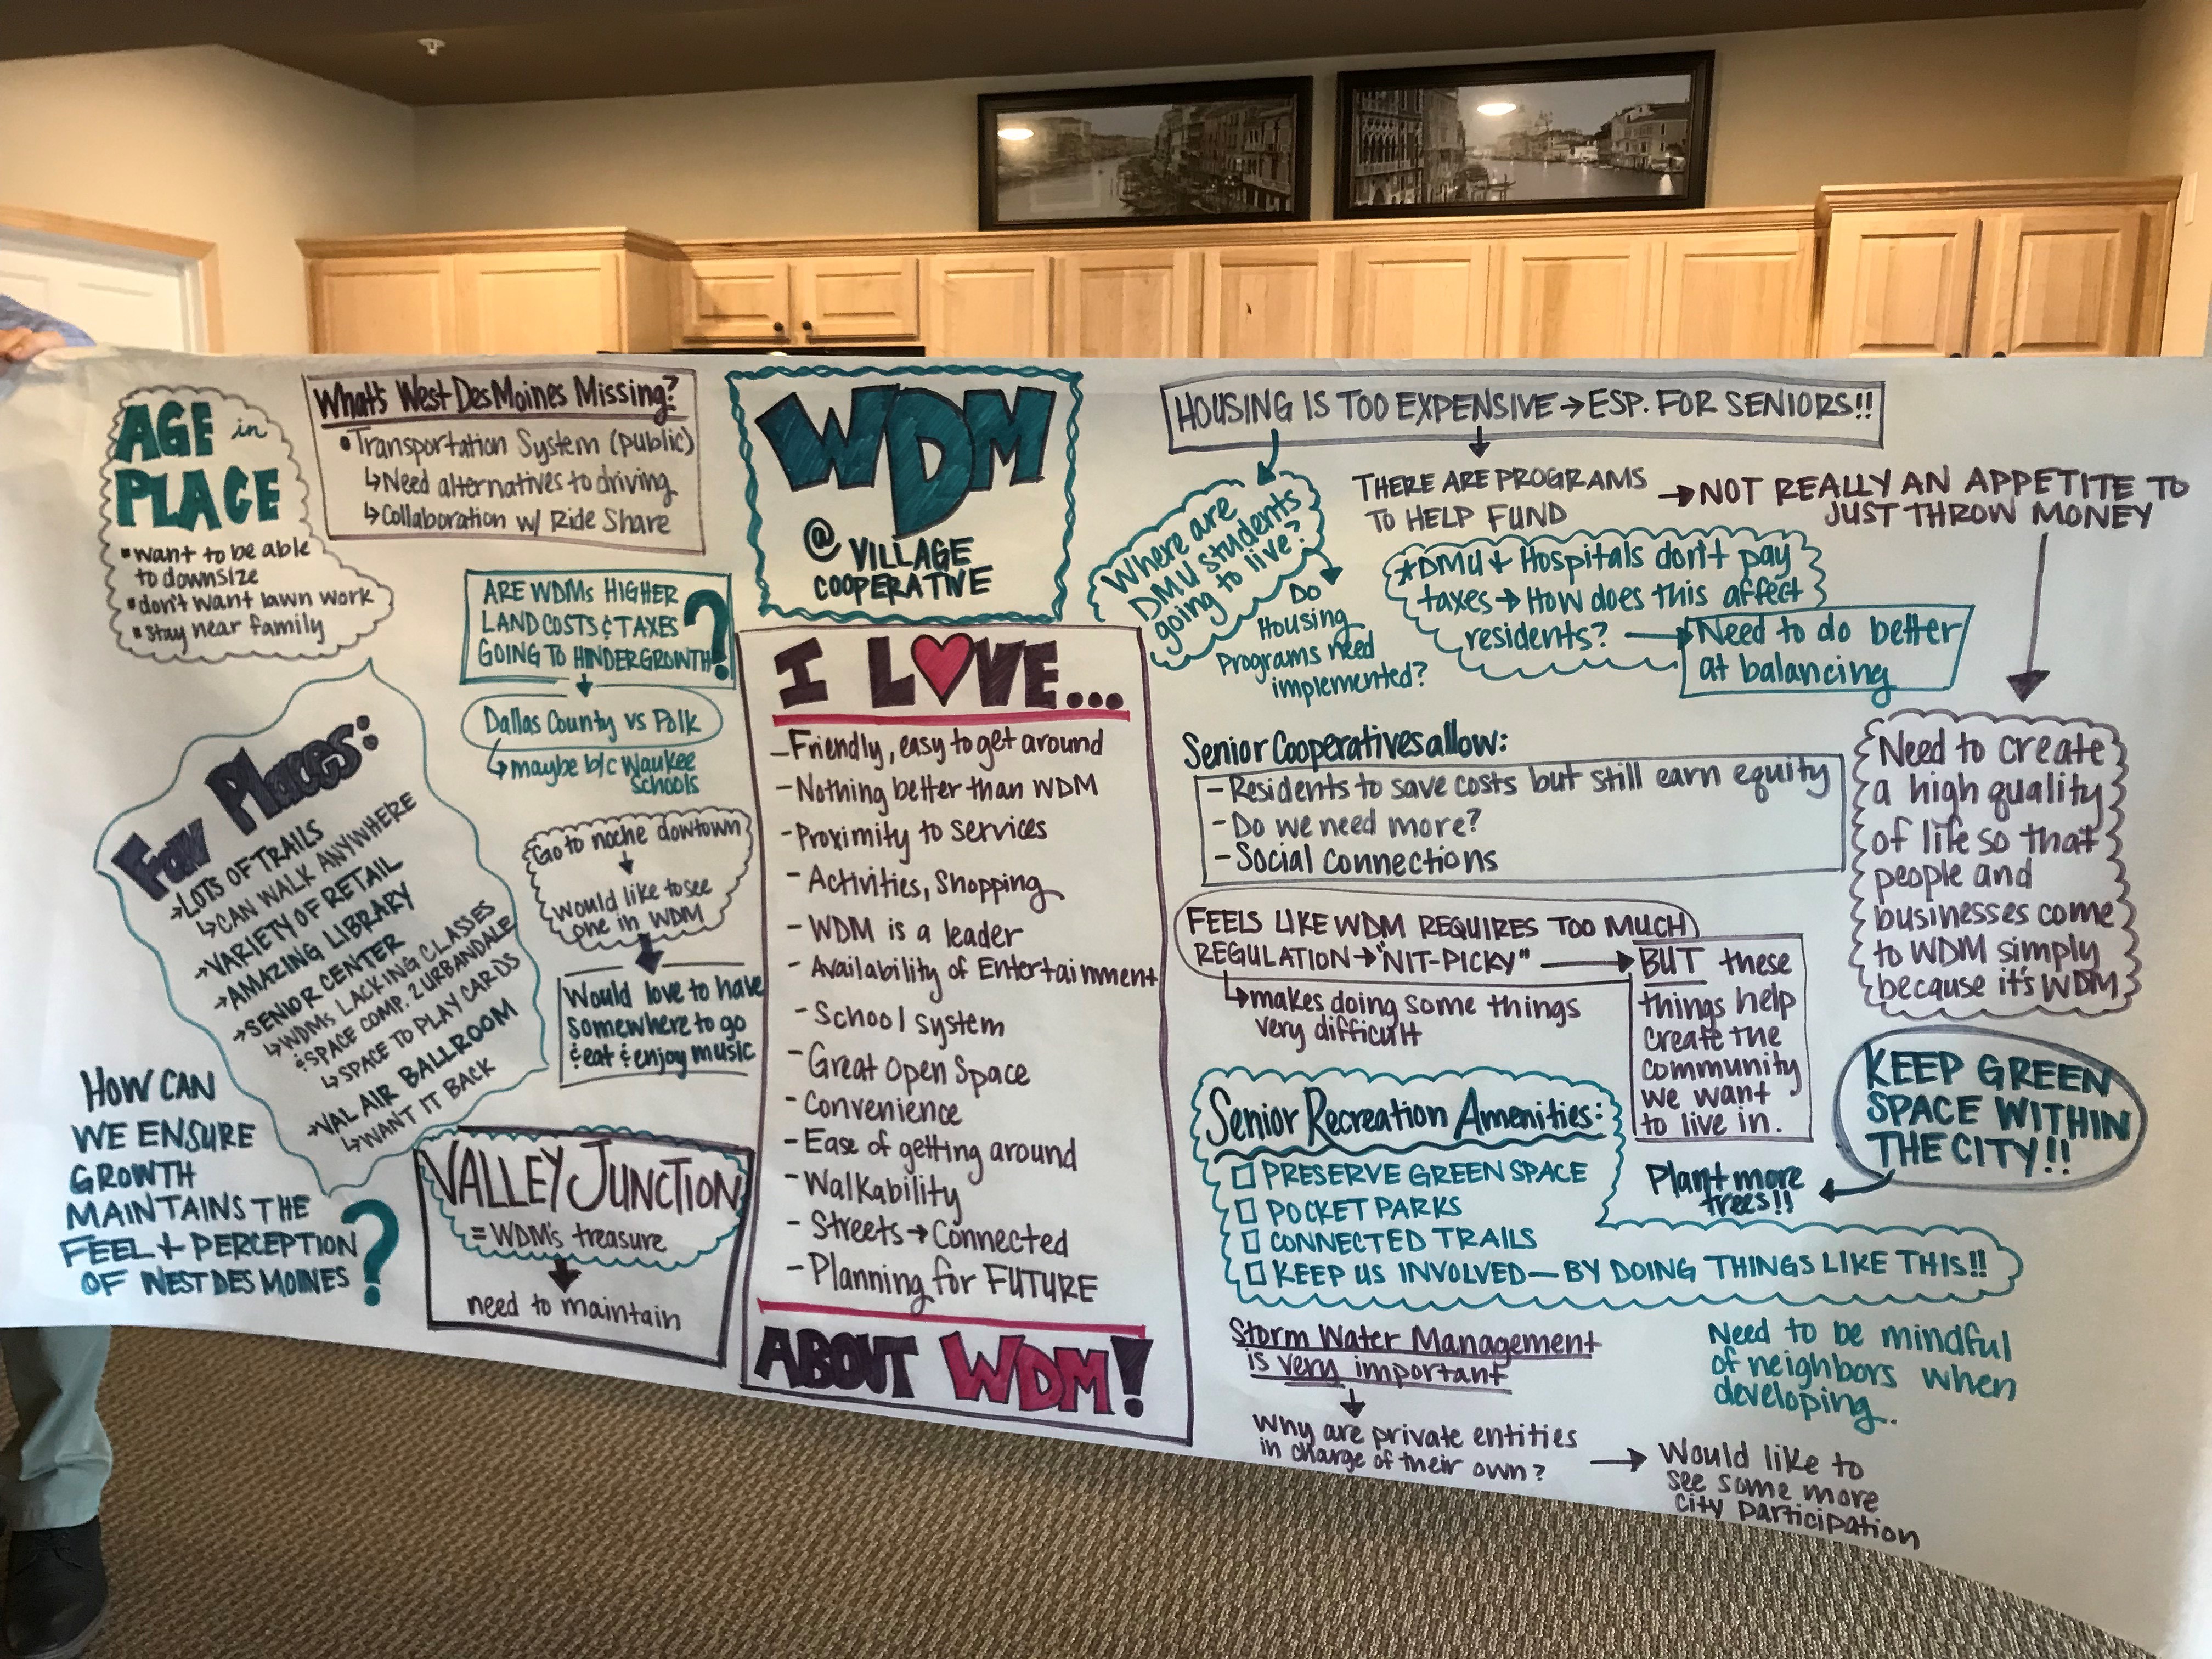 AGE in
PLACE
▪want to be able
to downsize
▪don't want lawn work
▪stay near family
What's West Des Moines Missing?
•Transportation System (public)
↳Need alternatives to driving
↳Collaboration w/ Ride Share
ARE WDMs HIGHER
LAND COSTS & TAXES
GOING TO HINDER GROWTH?
Dallas County vs Polk
↳maybe b/c Waukee
Schools
Fav Places:
→LOTS OF TRAILS
↳CAN WALK ANYWHERE
→VARIETY OF RETAIL
→AMAZING LIBRARY
→SENIOR CENTER
↳WDMs LACKING CLASSES
& SPACE COMP. 2 URBANDALE
↳SPACE TO PLAY CARDS
→VAL AIR BALLROOM
↳WANT IT BACK
Go to noche dowtown
↓
would like to see
one in WDM
Would love to have
somewhere to go
& eat & enjoy music
HOW CAN
WE ENSURE
GROWTH
MAINTAINS THE
FEEL + PERCEPTION
OF WEST DES MOINES?
VALLEY JUNCTION
= WDM's treasure
need to maintain
WDM
@ VILLAGE
COOPERATIVE
I LOVE...
-Friendly, easy to get around
-Nothing better than WDM
-Proximity to services
-Activities, Shopping
-WDM is a leader
-Availability of Entertainment
-School system
-Great Open Space
-Convenience
-Ease of getting around
-Walkability
-Streets→Connected
-Planning for FUTURE
ABOUT WDM!
HOUSING IS TOO EXPENSIVE→ESP. FOR SENIORS!!
Where are
DMU students
going to live?
Do
Housing
Programs need
implemented?
THERE ARE PROGRAMS
TO HELP FUND
→NOT REALLY AN APPETITE TO
JUST THROW MONEY
*DMU + Hospitals don't pay
taxes→How does this affect
residents?
Need to do better
at balancing
Senior Cooperatives allow:
-Residents to save costs but still earn equity
-Do we need more?
-Social Connections
Need to create
a high quality
of life so that
people and
businesses come
to WDM simply
because it's WDM
FEELS LIKE WDM REQUIRES TOO MUCH
REGULATION→"NIT-PICKY"
↳makes doing some things
very difficult
BUT these
things help
create the
community
we want
to live in.
KEEP GREEN
SPACE WITHIN
THE CITY!!
Plant more
trees!!
Senior Recreation Amenities:
□ PRESERVE GREEN SPACE
□ POCKET PARKS
□ CONNECTED TRAILS
□ KEEP US INVOLVED—BY DOING THINGS LIKE THIS!!
Storm Water Management
is very important
Why are private entities
in charge of their own?
→ Would like to
see some more
city participation
Need to be mindful
of neighbors when
developing.